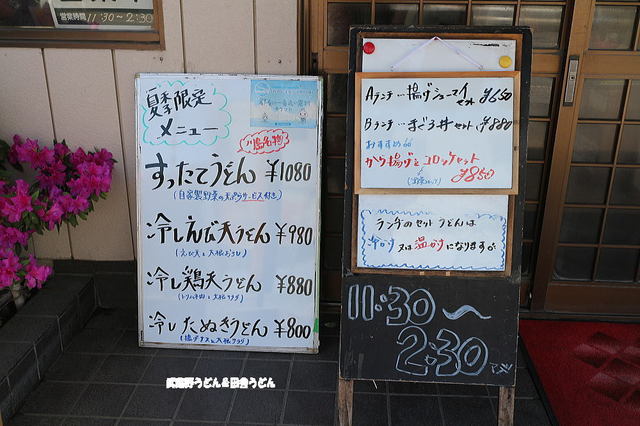 営業時間 11:30~2:30
夏季限定
メニュー
川島名物
すったてうどん ¥1080
(自家製野菜の天ぷらサービス付き)
冷しえび天うどん ¥980
冷し鶏天うどん ¥880
冷したぬきうどん ¥800
Aランチ…揚げシューマイセット ¥650
Bランチ…まぐろ丼セット ¥880
おすすめ
から揚げとコロッケセット
¥850
ランチのセットうどんは
冷かけ又は温かけになります
11:30~
2:30
武蔵野うどん&田舎うどん